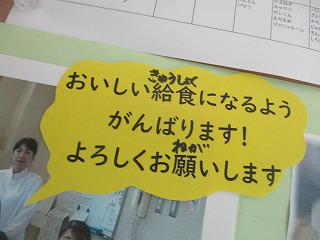 きゅうしょく
おいしい給食になるよう
がんばります!
ねが
よろしくお願いします